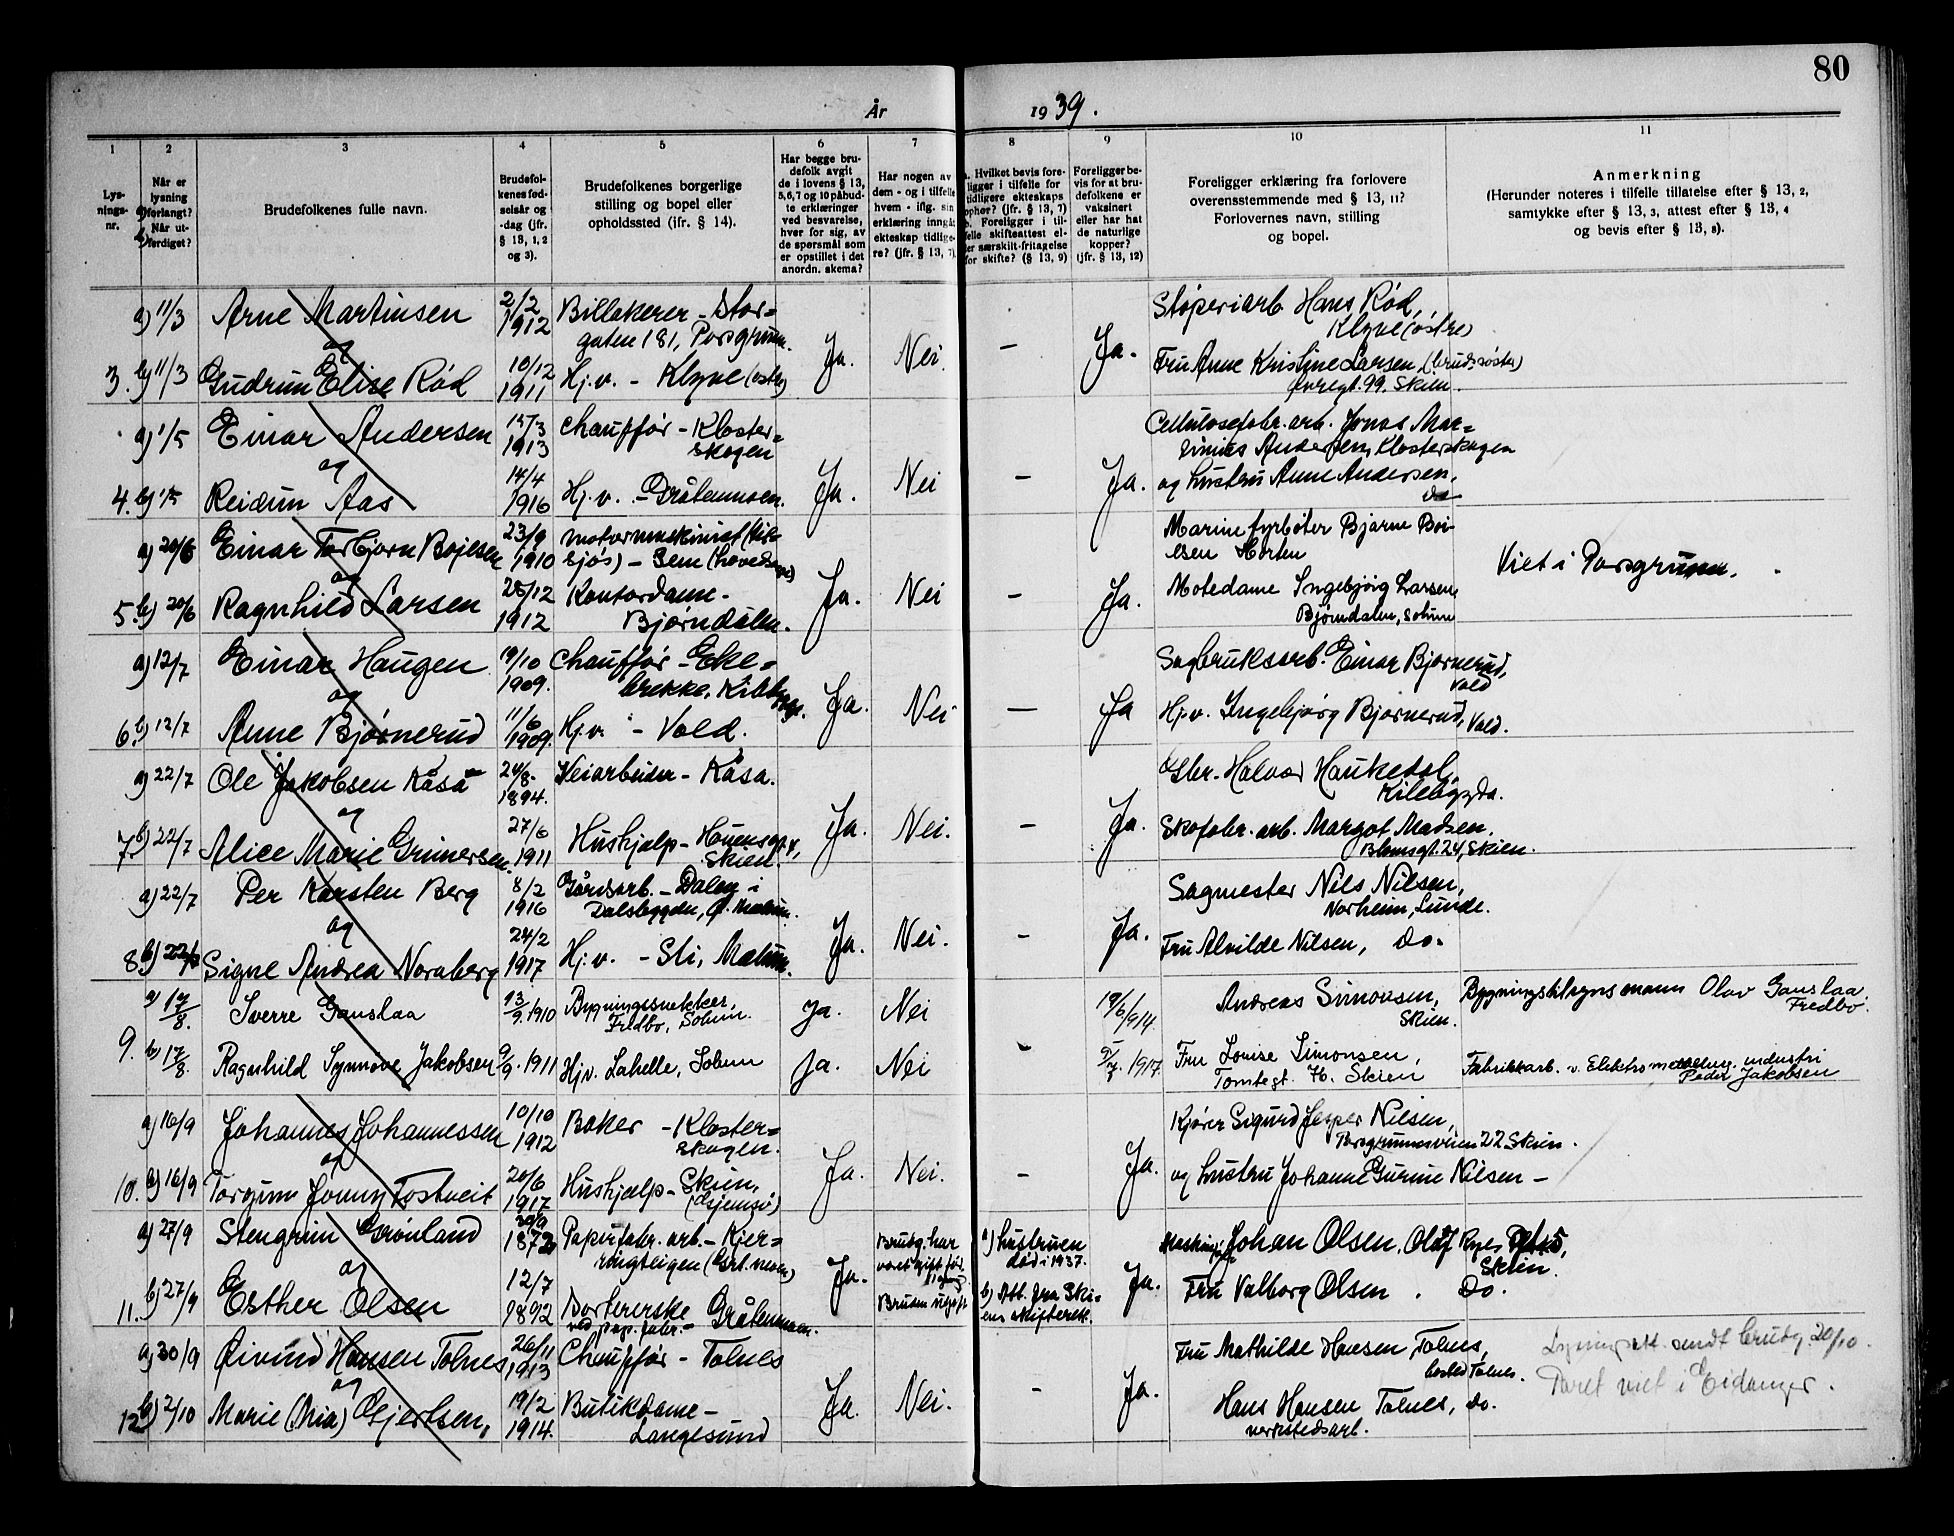 80
År 1939.
1 2 3 4 5 6 7 8 9 10 11
Lys-
nings-
nr.
a) Når er
lysning
forlangt?
b) Når ut-
ferdiget?
Brudefolkenes fulle navn.
Brudefol-
kenes fød-
selsår og
-dag (jfr.
§ 13, 1, 2
og 3).
Brudefolkenes borgerlige
stilling og bopel eller
opholdssted (ifr. § 14).
Har begge bru-
defolk avgit
de i lovens § 13,
5,6,7 og 10 påbud-
te erklæringer
ved besvarelse,
hver for sig, av
de spørsmål som
er opstillet i det
anordn. skema?
Har nogen av
dem - og i tilfelle
hvem - iflg. sin
erklæring inngåt
ekteskap tidlige-
re? (jfr. § 13, 7)
a. Hvilket bevis fore-
ligger i tilfelle for
tidligere ekteskaps
ophør? (jfr. § 13, 7)
b. Foreligger i til-
felle skifteattest el-
ler særskilt-fritagelse
for skifte? (§ 13, 9)
Foreligger be-
vis for at bru-
defolkene er
vaksinert
eller har hat
de naturlige
kopper?
(jfr. § 13, 12)
Foreligger erklæring fra forlovere
overensstemmende med § 13, 11?
Forlovernes navn, stilling
og bopel.
Anmerkning
(Herunder noteres i tilfelle tillatelse efter § 13, 2,
samtykke efter § 13, 3, attest efter § 13, 4
og bevis efter § 13, 8).
a) 11/3 Arne Martinsen 2/2 1912 Billakerer - Stor=
gaten 181, Porsgrunn.
og
3. b) 11/3 Gudrun Elise Rød 10/12 1911 Hj.v. - Klyve (østre) Ja. Nei. - Ja.
Støperiarb. Hans Rød,
Klyve (østre)
Fru Anne Kristine Larsen, (bruds søster)
99, Skien.
a) 1/5 Einar Andersen 15/3 1913 Chauffør - Kloster=
skogen
og
4. b) 1/5 Reidun Aas 14/4 1916 Hj.v. - Gråtenmoen. Ja. Nei - Ja.
Cellulosefabr. arb. Jonas Mar=
Andersen, Klosterskogen
og hustru Anne Andersen,
do
a) 20/6 Einar Torbjørn Bojesen 23/9 1910 motormaskinist (til-
sjøs) - Sem
og
5. b) 20/6 Ragnhild Larsen 25/12 1912 Kontordame -
Bjørndalen. Ja. Nei - Ja.
Marine fyrbøter Bjarne Boi-
esen Horten
Motedame Ingebjørg Larsen,
Bjørndalen, Solum
Viet i Porsgrunn.
a) 12/7 Einar Haugen 19/10 1909. Chauffør - Eke=
brekke,
og
6. b) 12/7 Anne Bjørnerud 11/6 1909. Hj.v. - Vold. Ja. Nei - Ja
Sagbruksarb. Einar Bjørnerud,
Vold
Hj.v. Ingebjørg Bjørnerud, Vold.
a) 22/7 Ole Jakobsen Kåsa 24/8. 1894. Veiarbeider - Kåsa.
og
7. b) 22/7 Alice Marie Grinersen. 27/6 1911 Hushjelp -
Skien. Ja. Nei. - Ja.
Gbr. Halvor Haukedal,
Kilebygda.
Skofabr. arb. Margot Madsen.
Blomsgt. 24, Skien.
a) 22/7 Per Karsten Berg 8/2 1916 Gårdsarb. - Dalen i
Dalsbygden, Ø. Melum.
og
8. b) 22/7 Signe Andrea Nornberg 24/2 1917 Hj.v. - Sti, Melum. Ja. Nei. - Ja.
Sagmester Nils Nilsen,
Norheim, Lunde.
Fru Alvilde Nilsen, do.
a) 17/8. Sverre Ganslaa 13/9. 1910 Bygningssnekker,
Fredbo, Solum. Ja. Nei 19/6 1914
Andreas Simonsen,
Skien.
Bygningstilsynsmann Olav Ganslaa
Fredbo.
9. b) 17/8. Ragnhild Synnøve Jakobsen 9/9. 1911 Hj.v. Lahelle, Solum Ja. Nei - 1917.
Fru Lovise Simonsen,
Tomtegt. Skien
Fabrikkarb. v. Elektrometallurg. industri
Peder Jakobsen
a) 16/9 Johannes Johannessen 10/10 1912 Baker - Kloster=
skogen.
og
10. b) 16/9 Torgunn Jonny Tostveit 20/6 1917 Hushjelp - Skien,
Ja. Nei. - Ja.
Kjører Sigurd Jesper Nilsen,
Porsgrunnsveien 22 Skien.
og hustru Johanne Gurine Nilsen -
a) 27/9 Stengrim Grønland 30/9 1872 Papirfabr. arb. - Kjer=
ringteigen
og
11. b) 27/9 Esther Olsen 12/7 1892 Sortererske
ved pap. fabr. - Gråtenmoen. Ja.
Brudg. har
vært gift før
1 gang.
Bruden ugift
a) hustruen
død i 1937.
b) Att. fra Ski-
ens skifterett. Ja.
Johan Olsen, Olaf Ryes
Skien.
Fru Valborg Olsen. Do.
a) 30/9 Øivind Hansen Tolnes 26/11 1913 Chauffør - Tolnes
og
12. b) 2/10 Marie (Mia) Gjertsen, 19/2 1914. Butikdame -
Langesund Ja. Nei. - Ja.
Fru Mathilde Hansen Tolnes,
bosted Tolnes.
Hans Hansen Tolnes, do.
verkstedsarb.
Lysningsatt. sendt brudg. 20/10.
Paret viet i Eidanger.